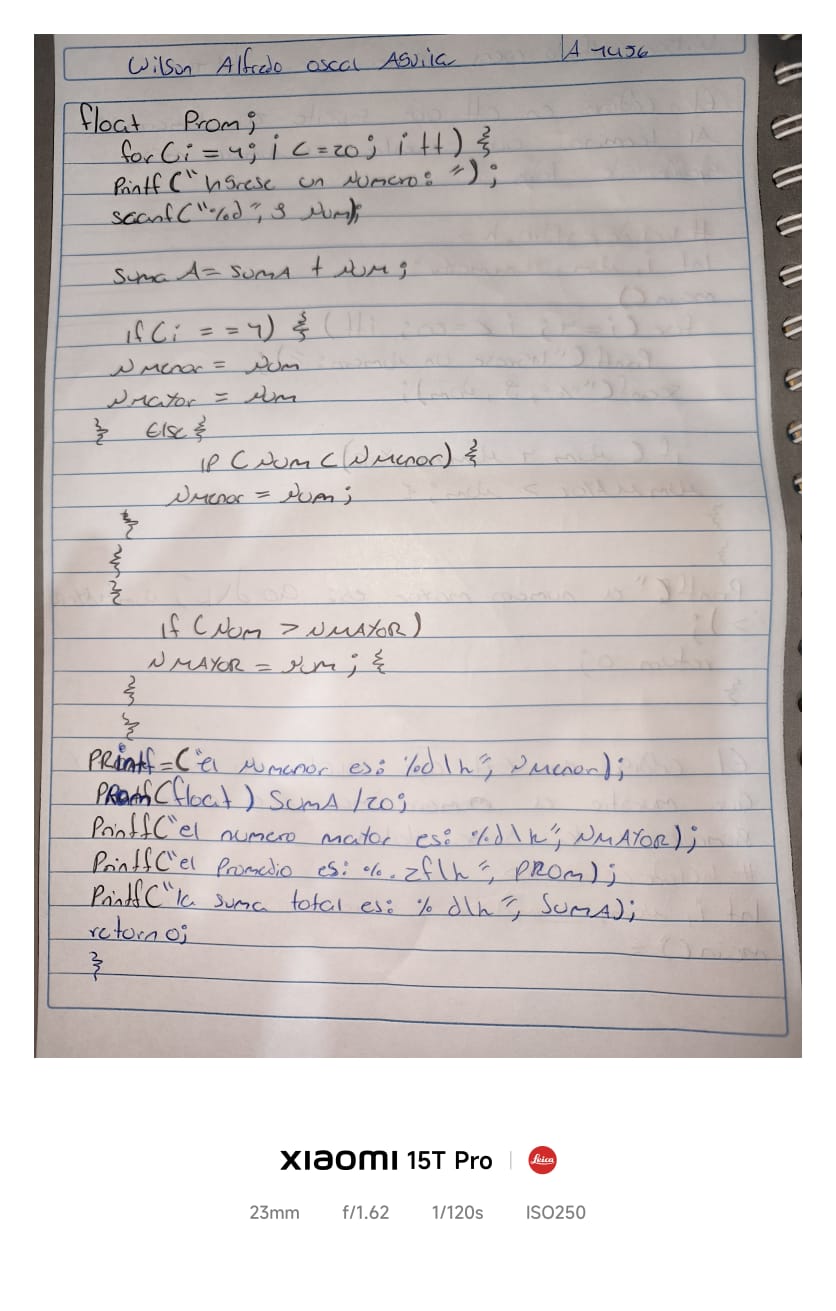 Wilson Alfredo oscal Aguila A 1456
float Prom;
for (i = 1; i <= 20; i++) {
Printf ("Ingrese un Numero: ");
scanf ("%d", & Num);
Suma A = SUMA + NUM;
if (i == 1) {
NMenor = Num
NMayor = Num
} Else {
if (NUM < (NMenor) {
NMenor = Num;
}
}
}
if (Num > NMAYOR)
NMAYOR = Num; {
}
}
PRintf = ("el Numenor es: %d\n", NMenor);
(float) SUMA /20;
Printf ("el numero mator es: %d\n", NMAYOR);
Printf ("el Promedio es: %.2f\n", PROM);
Printf ("la suma total es: %d\n", SUMA);
return 0;
}
XIAOMI 15T Pro | Leica
23mm f/1.62 1/120s ISO250